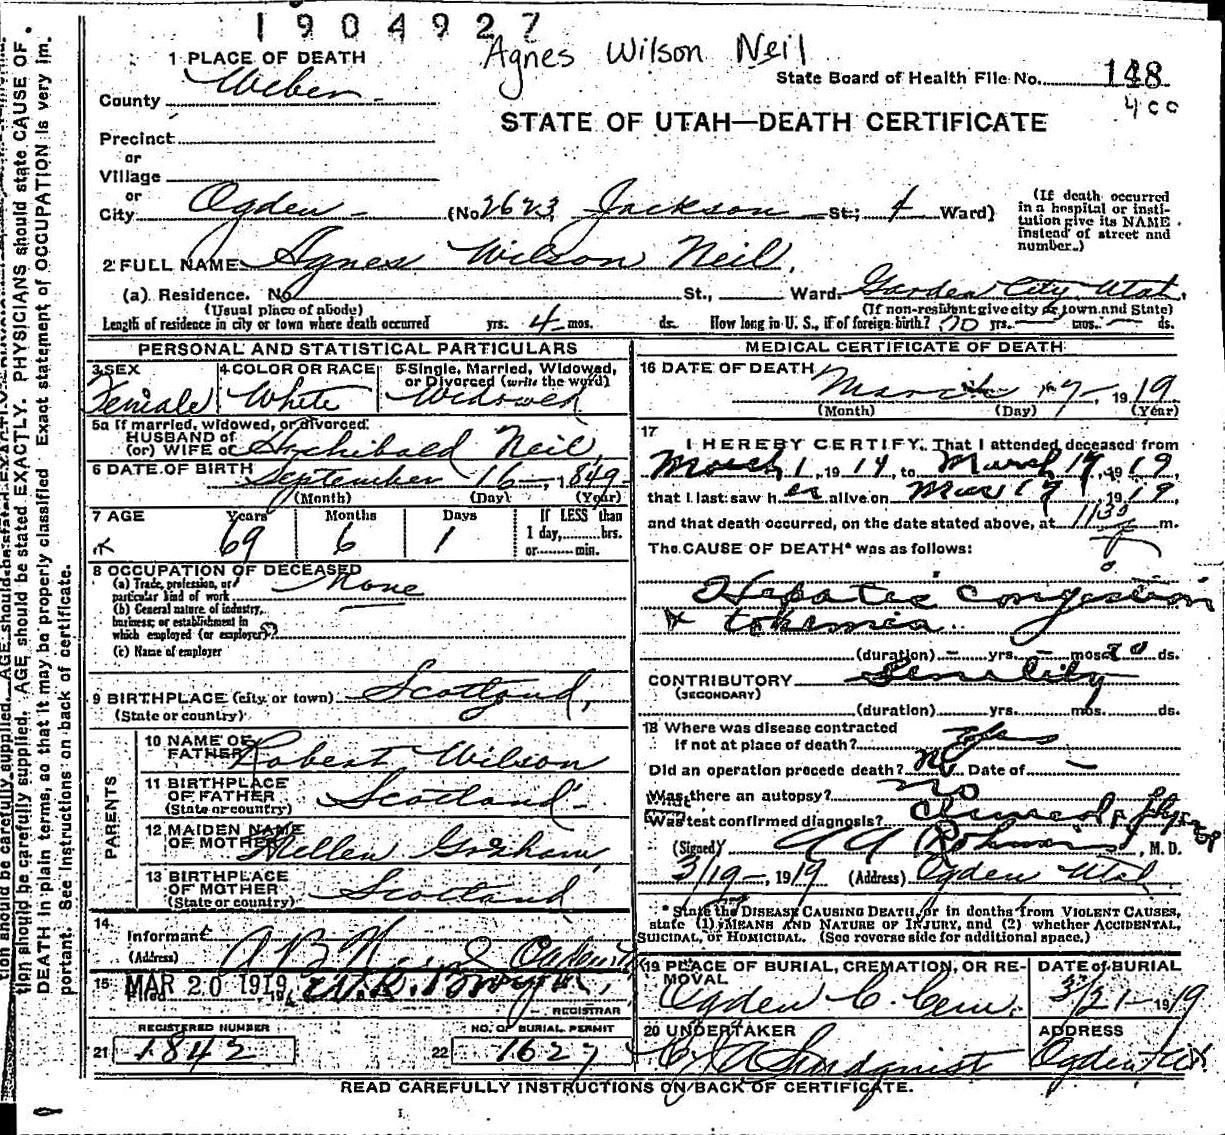 1904927
Agnes Wilson Neil
1 PLACE OF DEATH
State Board of Health File No. 148
County Weber
400
STATE OF UTAH—DEATH CERTIFICATE
Precinct
or
Village
or
City Ogden (No. 2623 Jackson St; 4 Ward)
(If death occurred in a hospital or institution give its NAME instead of street and number.)
2 FULL NAME Agnes Wilson Neil
(a) Residence. No. St., Ward. Garden City Utah.
(Usual place of abode) (If non-resident give city or town and State)
Length of residence in city or town where death occurred yrs. 4 mos. ds. How long in U. S., if of foreign birth? 70 yrs. — mos. — ds.
PERSONAL AND STATISTICAL PARTICULARS
3 SEX Female
4 COLOR OR RACE White
5 Single, Married, Widowed, or Divorced (write the word) Widowed
5a If married, widowed, or divorced
HUSBAND of
(or) WIFE of Archibald Neil
6 DATE OF BIRTH September 16 - 1849
(Month) (Day) (Year)
7 AGE Years 69 Months 6 Days 1
If LESS than
1 day, hrs.
or min.
8 OCCUPATION OF DECEASED
(a) Trade, profession, or
particular kind of work None
(b) General nature of industry,
business, or establishment in
which employed (or employer)?
(c) Name of employer
9 BIRTHPLACE (city or town) Scotland,
(State or country)
PARENTS
10 NAME OF
FATHER Robert Wilson
11 BIRTHPLACE
OF FATHER Scotland
(State or country)
12 MAIDEN NAME
OF MOTHER Hellen Graham
13 BIRTHPLACE
OF MOTHER Scotland
(State or country)
14
Informant
(Address) Ogden
15 Filed MAR 20 1919, 191
REGISTRAR
REGISTERED NUMBER
21 1842
NO. OF BURIAL PERMIT
22 1627
MEDICAL CERTIFICATE OF DEATH
16 DATE OF DEATH
March 17 - 1919
(Month) (Day) (Year)
17
I HEREBY CERTIFY, That I attended deceased from
March 1, 1914 to March 17, 1919
that I last saw her alive on Mar 17, 1919,
and that death occurred, on the date stated above, at 1130 m.
The CAUSE OF DEATH* was as follows:
Hepatic congestion
tokemia
(duration) — yrs. — mos. 20 ds.
CONTRIBUTORY Senility
(SECONDARY)
(duration) yrs. mos. ds.
18 Where was disease contracted
if not at place of death? yes
Did an operation precede death? no Date of —
Was there an autopsy? no
What test confirmed diagnosis?
(Signed) M. D.
3/19-, 1919 (Address) Ogden Utah
* State the DISEASE CAUSING DEATH, or in deaths from VIOLENT CAUSES,
state (1) MEANS AND NATURE OF INJURY, and (2) whether ACCIDENTAL,
SUICIDAL, or HOMICIDAL. (See reverse side for additional space.)
19 PLACE OF BURIAL, CREMATION, OR RE-
MOVAL
Ogden C. Cem.
DATE of BURIAL
3/21-1919
20 UNDERTAKER
ADDRESS
Ogden Ut.
READ CAREFULLY INSTRUCTIONS ON BACK OF CERTIFICATE.
tion should be carefully supplied. AGE should be stated EXACTLY. PHYSICIANS should state CAUSE OF
DEATH in plain terms, so that it may be properly classified. Exact statement of OCCUPATION is very im-
portant. See instructions on back of certificate.